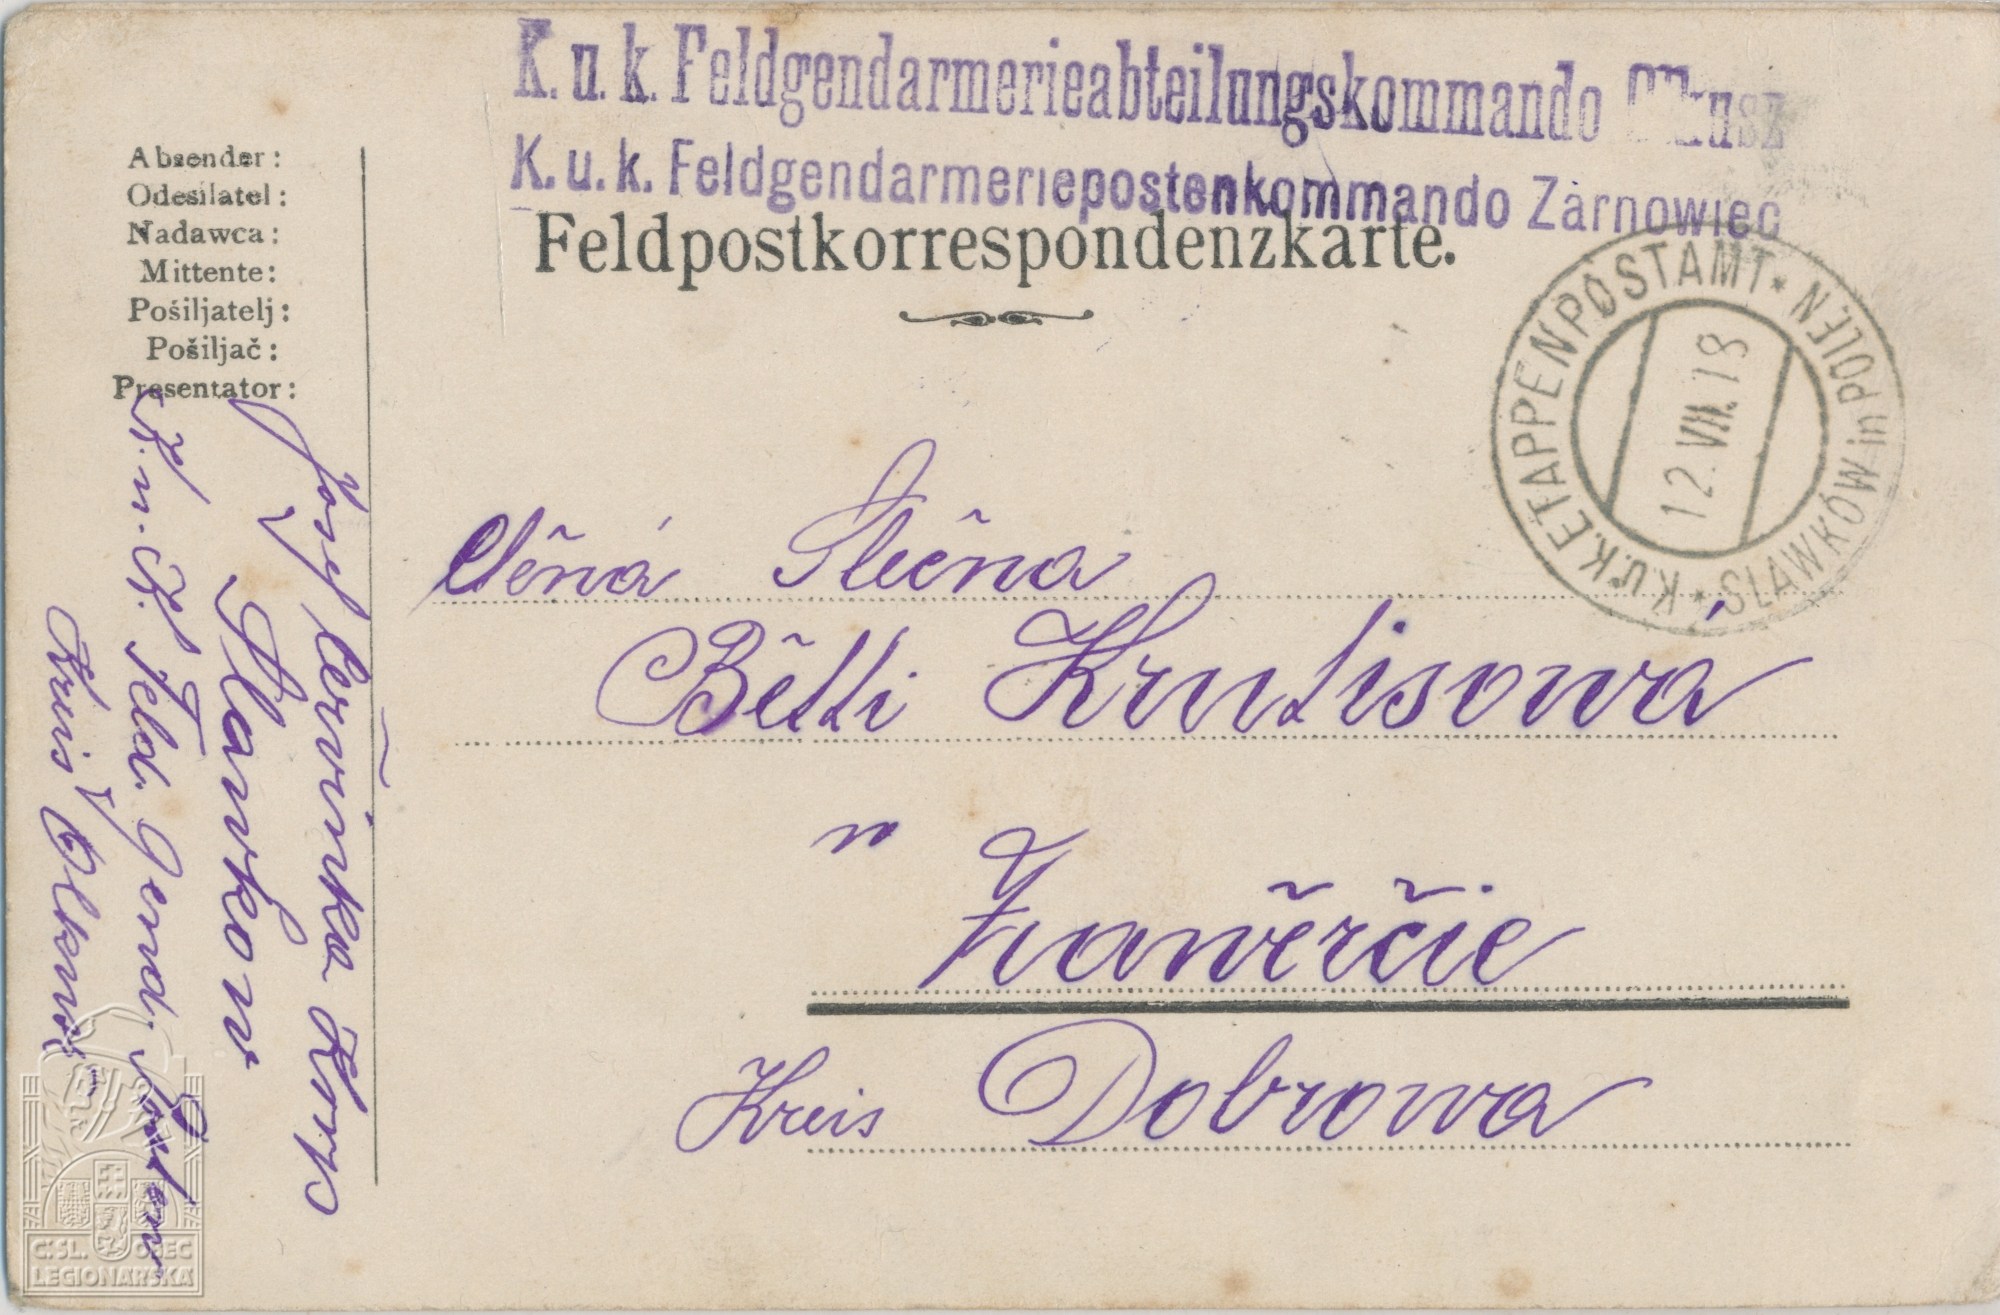 K. u. k. Feldgendarmerieabteilungskommando Olkusz
K. u. k. Feldgendarmeriepostenkommando Zarnowiec
Feldpostkorrespondenzkarte.
K.u.K. ETAPPENPOSTAMT * N. POLEN
* SLAWKÓW in
12. VIII. 18
Absender:
Odesílatel:
Nadawca:
Mittente:
Pošiljatelj:
Pošiljač:
Presentator:
Josef Červinka
Slawkow
K. u. K. Feld. Gend. Posten
Kreis Olkusz
Ctěná Slečna
Bětti Krutisowá
w
Zawěrčie
Kreis Dobrowa
Č.SL. OBEC
LEGIONÁŘSKÁ